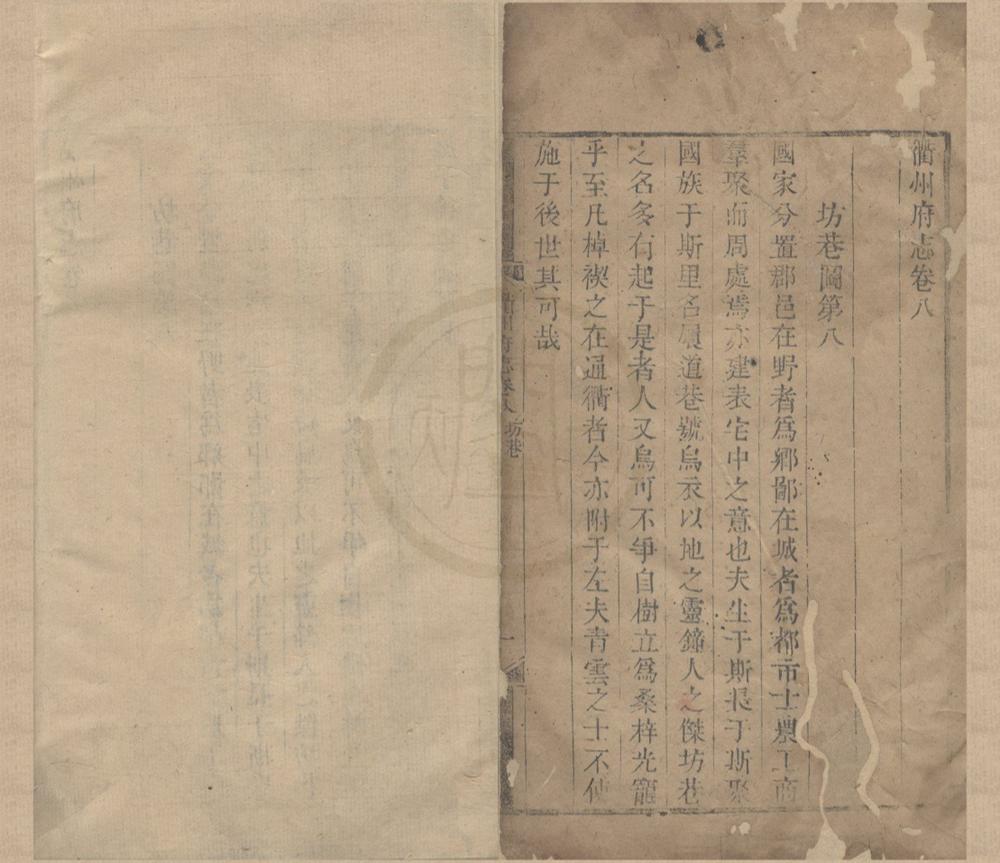 衢州府志卷八
坊巷圖第八
國家分置郡邑在野者爲鄉鄙在城者爲都市士農工商
羣聚而周處焉亦建表宅中之意也夫生于斯長于斯聚
國族于斯里名續道巷號烏衣以地之靈鍾人之傑坊巷
之名多有起于是者人又烏可不爭自樹立爲桑梓光寵
乎至凡棹楔之在通衢者今亦附于左夫青雲之士不使
施于後世其可哉
衢州府志卷八 坊巷 一